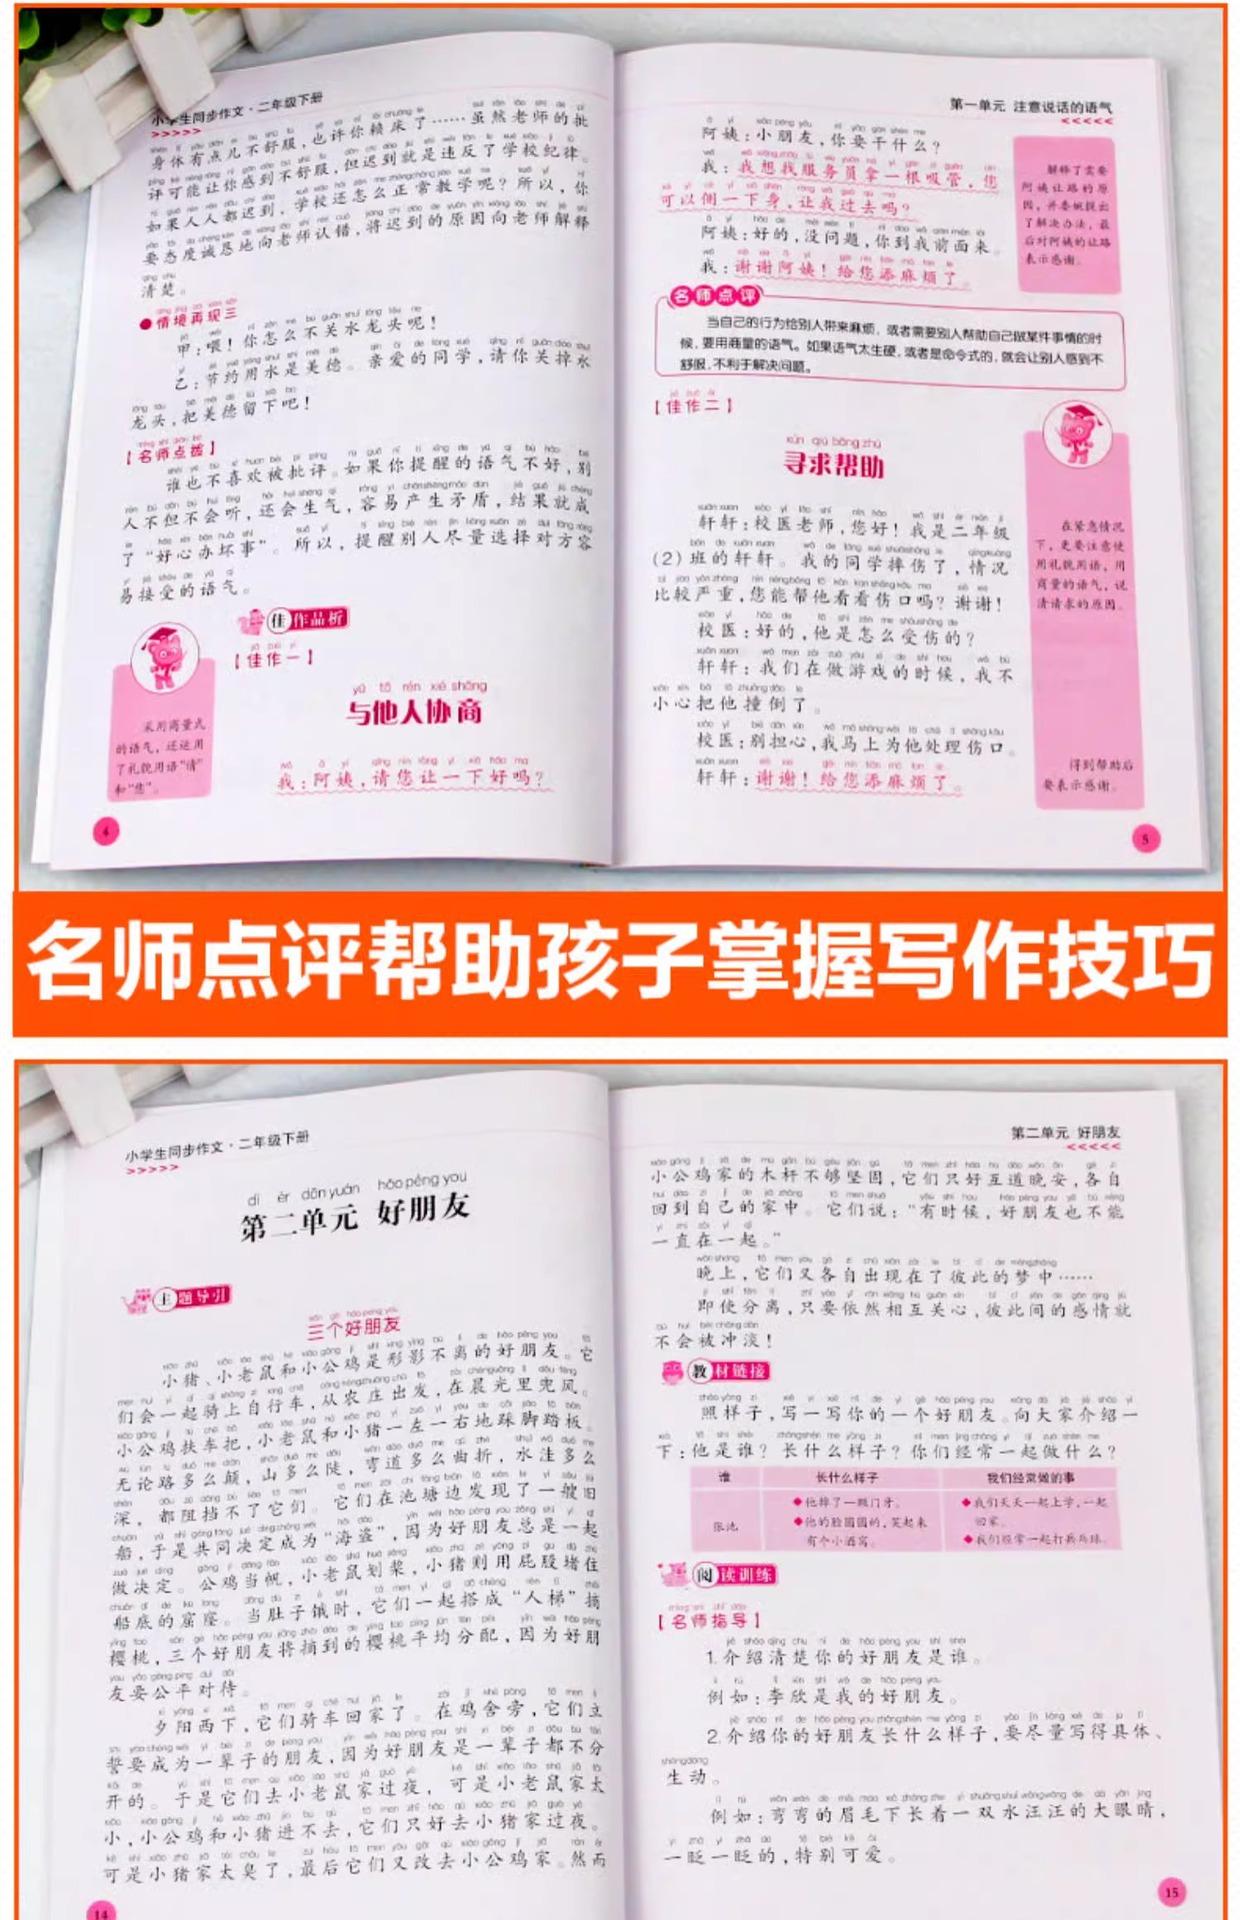 小学生同步作文·二年级下册
身体有点儿不舒服，也许你赖床了……虽然老师的批
评可能让你感到不舒服，但迟到就是违反了学校纪律。
如果人人都迟到，学校还怎么正常教学呢？所以，你
要态度诚恳地向老师认错，将迟到的原因向老师解释
清楚。
●情境再现三
甲：喂！你怎么不关水龙头呢！
乙：节约用水是美德。亲爱的同学，请你关掉水
龙头，把美德留下吧！
【名师点拨】
谁也不喜欢被批评。如果你提醒的语气不好，别
人不但不会听，还会生气，容易产生矛盾，结果就成
了“好心办坏事”。所以，提醒别人尽量选择对方容
易接受的语气。
佳作品析
【佳作一】
yǔ tā rén xié shāng
与他人协商
我：阿姨，请您让一下好吗？
采用商量式
的语气，还运用
了礼貌用语“请”
和“您”。
4
第一单元 注意说话的语气
阿姨：小朋友，你要干什么？
我：我想找服务员拿一根吸管，您
可以侧一下身，让我过去吗？
阿姨：好的，没问题，你到我前面来。
我：谢谢阿姨！给您添麻烦了。
解释了需要
阿姨让路的原
因，并委婉提出
了解决办法，最
后对阿姨的让路
表示感谢。
名师点评
当自己的行为给别人带来麻烦，或者需要别人帮助自己做某件事情的时
候，要用商量的语气。如果语气太生硬，或者是命令式的，就会让别人感到不
舒服，不利于解决问题。
【佳作二】
xún qiú bāng zhù
寻求帮助
轩轩：校医老师，您好！我是二年级
（2）班的轩轩。我的同学摔伤了，情况
比较严重，您能帮他看看伤口吗？谢谢！
校医：好的，他是怎么受伤的？
轩轩：我们在做游戏的时候，我不
小心把他撞倒了。
校医：别担心，我马上为他处理伤口。
轩轩：谢谢！给您添麻烦了。
在紧急情况
下，更要注意使
用礼貌用语，用
商量的语气，说
清请求的原因。
得到帮助后
要表示感谢。
5
名师点评帮助孩子掌握写作技巧
小学生同步作文·二年级下册
dì èr dān yuán hǎo péng you
第二单元 好朋友
主题导引
三个好朋友
小猪、小老鼠和小公鸡是形影不离的好朋友。它
们会一起骑上自行车，从农庄出发，在晨光里兜风。
小公鸡扶车把，小老鼠和小猪一左一右地踩脚踏板。
无论路多么颠，山多么陡，弯道多么曲折，水洼多么
深，都阻挡不了它们。它们在池塘边发现了一艘旧
船，于是共同决定成为“海盗”，因为好朋友总是一起
做决定。公鸡当帆，小老鼠划桨，小猪则用屁股堵住
船底的窟窿。当肚子饿时，它们一起搭成“人梯”摘
樱桃，三个好朋友将摘到的樱桃平均分配，因为好朋
友要公平对待。
夕阳西下，它们骑车回家了。在鸡舍旁，它们立
誓要成为一辈子的朋友，因为好朋友是一辈子都不分
开的。于是它们去小老鼠家过夜，可是小老鼠家太
小，小公鸡和小猪进不去，它们只好去小猪家过夜。
可是小猪家太臭了，最后它们又改去小公鸡家。然而
14
第二单元 好朋友
小公鸡家的木杆不够坚固，它们只好互道晚安，各自
回到自己的家中。它们说：“有时候，好朋友也不能
一直在一起。”
晚上，它们又各自出现在了彼此的梦中……
即使分离，只要依然相互关心，彼此间的感情就
不会被冲淡！
教材链接
照样子，写一写你的一个好朋友。向大家介绍一
下：他是谁？长什么样子？你们经常一起做什么？
谁 长什么样子 我们经常做的事
张池
◆他掉了一颗门牙。
◆他的脸圆圆的，笑起来
有个小酒窝。
◆我们天天一起上学，一起
回家。
◆我们经常一起打乒乓球。
阅读训练
【名师指导】
1.介绍清楚你的好朋友是谁。
例如：李欣是我的好朋友。
2.介绍你的好朋友长什么样子，要尽量写得具体、
生动。
例如：弯弯的眉毛下长着一双水汪汪的大眼睛，
一眨一眨的，特别可爱。
15